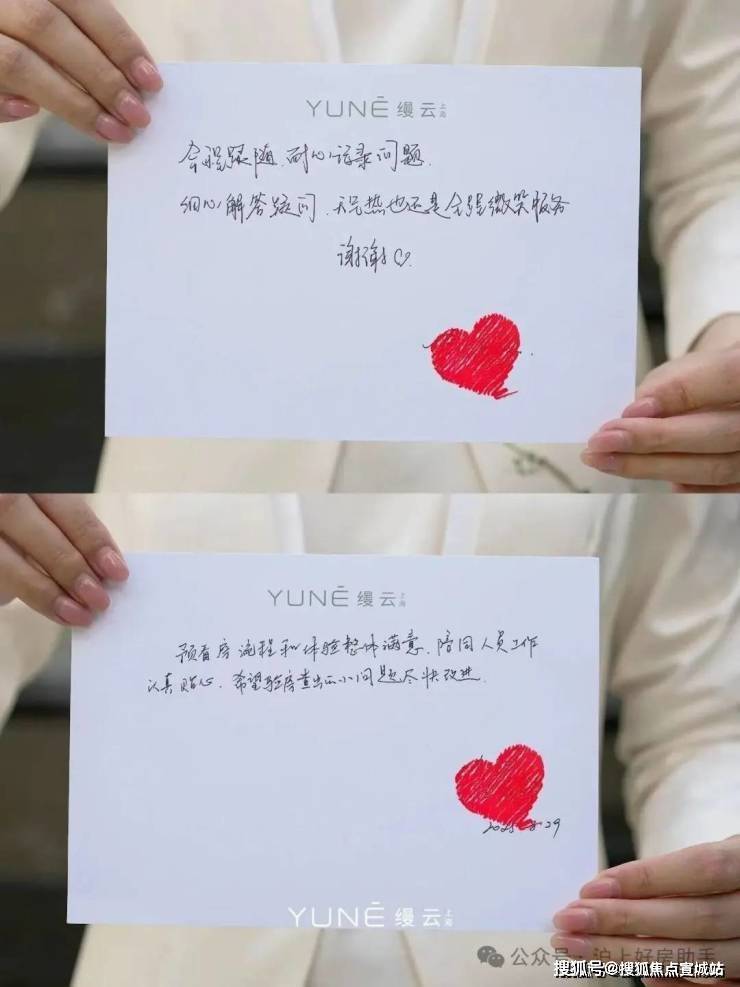 YUNĒ 缦云 上海
全程跟随、耐心记录问题、
细心解答疑问、天气热也还是全程微笑服务
谢谢♡
YUNĒ 缦云 上海
预看房流程和体验整体满意、陪同人员工作
认真贴心、希望验房查出的小问题尽快改进
2025-8-29
YUNĒ 缦云 上海
公众号·沪上好房助手
搜狐号@搜狐焦点宣城站